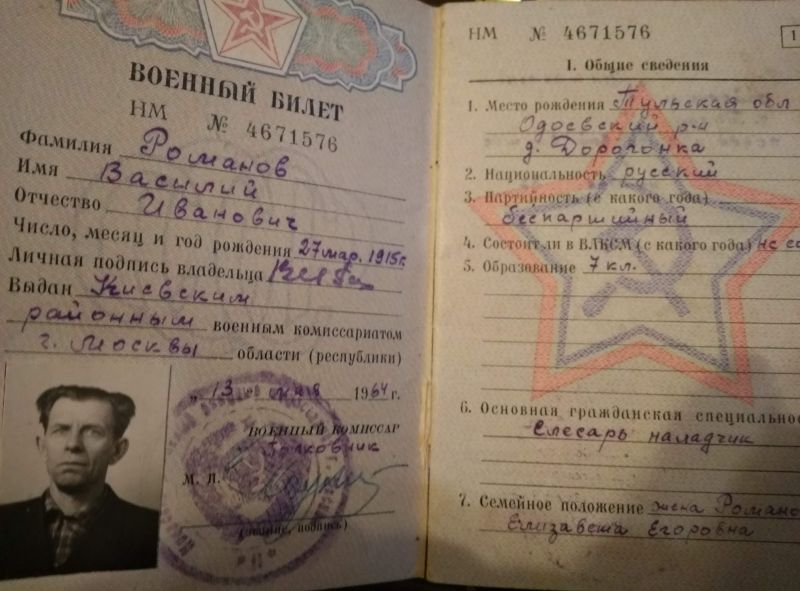 ВОЕННЫЙ БИЛЕТ
НМ № 4671576
Фамилия Романов
Имя Василий
Отчество Иванович
Число, месяц и год рождения 27 мар. 1915г.
Личная подпись владельца
Выдан Киевским
районным военным комиссариатом
г. Москвы области (республики)
„13" мая 1964 г.
ВОЕННЫЙ КОМИССАР
Полковник
М. П.
(звание, подпись)
НМ № 4671576
1
I. Общие сведения
1. Место рождения Тульская обл
Одоевский р-н
д. Дорогонка
2. Национальность русский
3. Партийность (с какого года)
беспартийный
4. Состоит ли в ВЛКСМ (с какого года) не со
5. Образование 7 кл.
6. Основная гражданская специальнос
Слесарь наладчик
7. Семейное положение жена Романо
Елизавета Егоровна